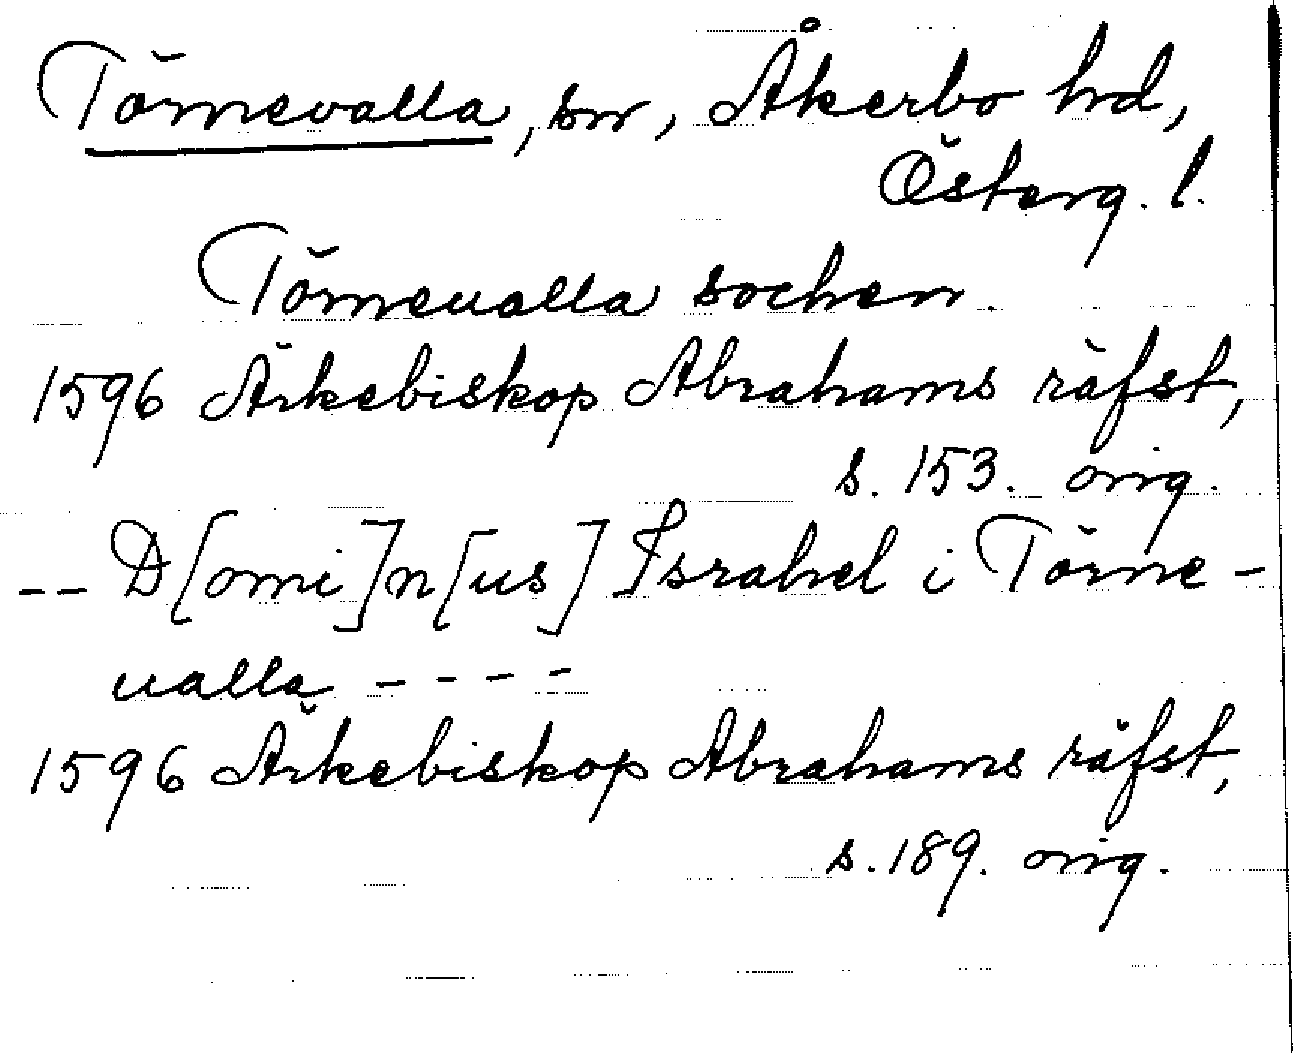 Törnevalla, sn, Åkerbo hd,
Österg. l.
Törneualla sochen.
1596 Ärkebiskop Abrahams räfst,
s. 153. orig.
-- D[omi]n[us] Israhel i Törne-
ualla ----
1596 Ärkebiskop Abrahams räfst,
s. 189. orig.